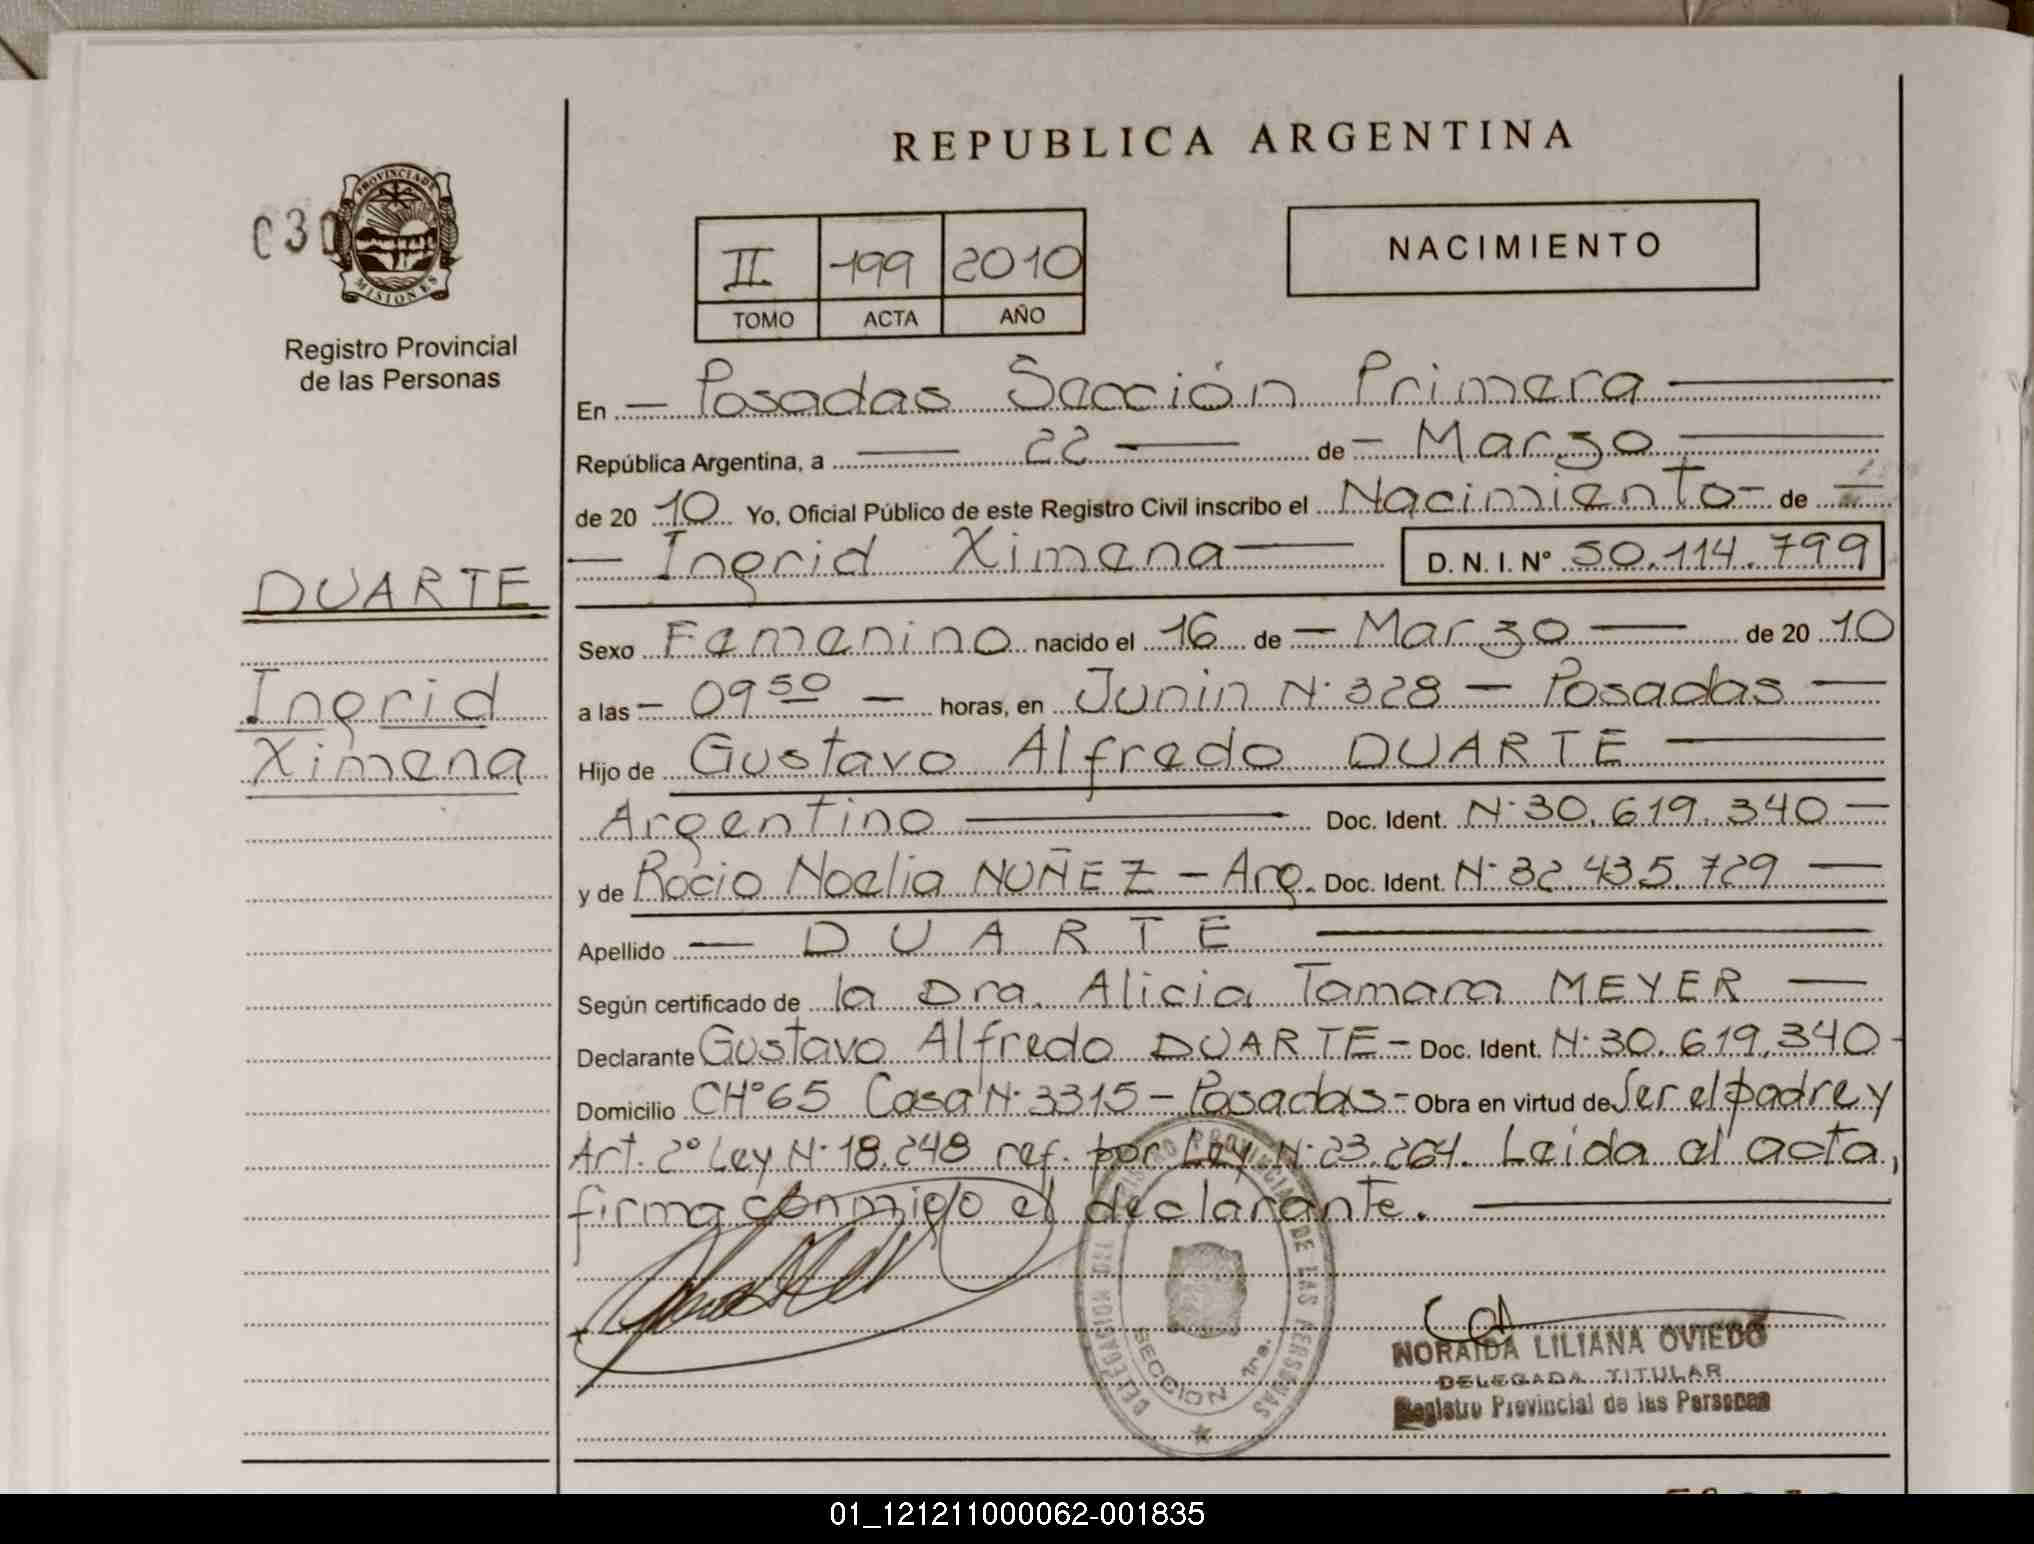 REPUBLICA ARGENTINA
030
PROVINCIA DE
MISIONES
Registro Provincial
de las Personas
II 199 2010
TOMO ACTA AÑO
NACIMIENTO
En — Posadas Sección Primera —
República Argentina, a — 22 — de — Marzo —
de 20 10 Yo, Oficial Público de este Registro Civil inscribo el Nacimiento - de —
— Ingrid Ximena — D. N. I. Nº 50.114.799
DUARTE
Ingrid
Ximena
Sexo Femenino nacido el 16 de — Marzo — de 20 10
a las — 09 50 — horas, en Junin N· 328 — Posadas —
Hijo de Gustavo Alfredo DUARTE —
Argentino — Doc. Ident. N· 30.619.340 —
y de Rocio Noelia NUÑEZ — Arg. Doc. Ident. N· 32.435.729 —
Apellido — DUARTE —
Según certificado de la Dra. Alicia Tamara MEYER —
Declarante Gustavo Alfredo DUARTE - Doc. Ident. N· 30.619.340 -
Domicilio CHº65 Casa N· 3315 - Posadas - Obra en virtud de Ser el padre y
Art. 2º Ley N· 18.248 ref. por Ley N· 23.264. Leida al acta,
firma conmigo el declarante. —
REGISTRO PROVINCIAL DE LAS PERSONAS
DELEGACION
SECCION 1ra.
NORAIDA LILIANA OVIEDO
DELEGADA TITULAR
Registro Provincial de las Personas
01_121211000062-001835